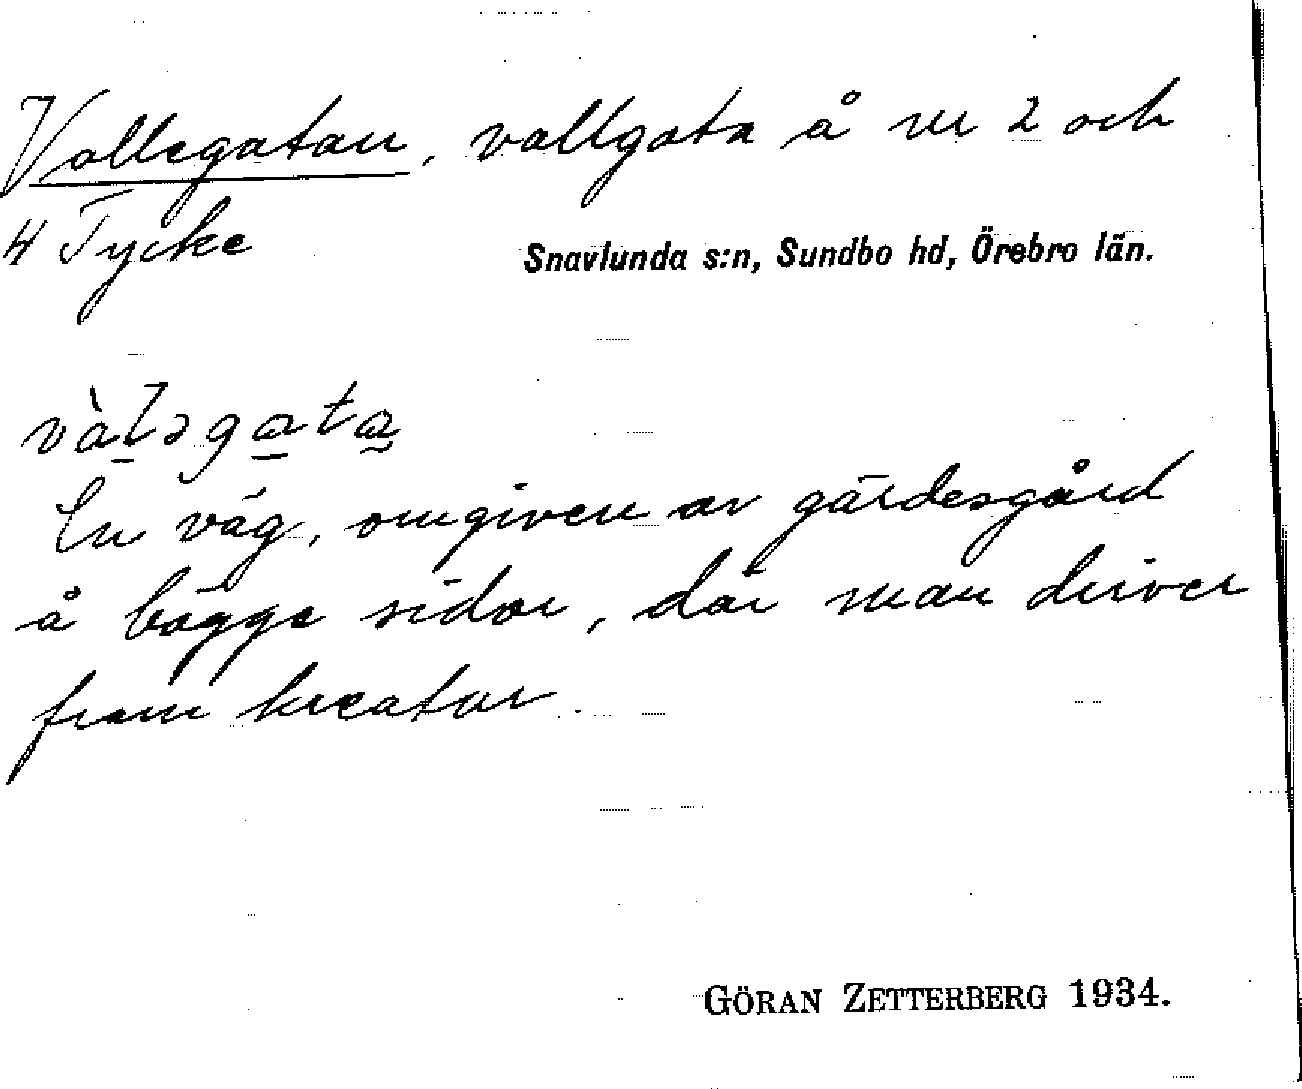 Vallegatan, vallgata å nr 2 och
4 Tycke
Snavlunda s:n, Sundbo hd, Örebro län.
vàl̠əga̠ta̰
En väg, omgiven av gärdesgård
å bägge sidor, där man driver
fram kreatur.
GÖRAN ZETTERBERG 1934.